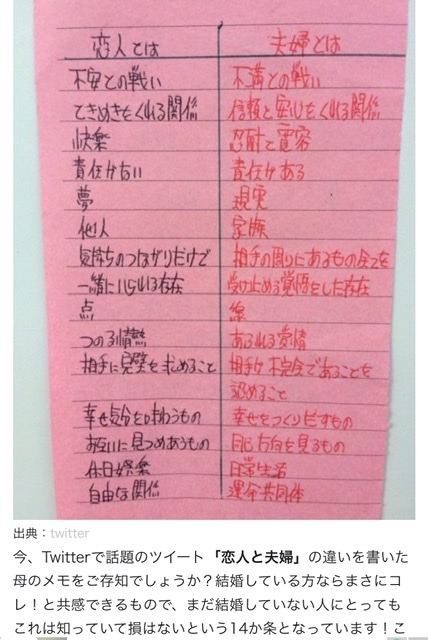 恋人とは 夫婦とは
不安との戦い 不満との戦い
ときめきをくれる関係 信頼と安心をくれる関係
快楽 忍耐と寛容
責任がない 責任がある
夢 現実
他人 家族
気持ちのつながりだけで 相手の周りにあるもの全てを
一緒にいられる存在 受け止める覚悟をした存在
点 線
つのる情熱 あふれる愛情
相手に完璧を求めること 相手が不完全であることを
認めること
幸せ気分を味わうもの 幸せをつくりだすもの
お互いに見つめあうもの 同じ方向を見るもの
休日娯楽 日常生活
自由な関係 運命共同体
出典：twitter
今、Twitterで話題のツイート「恋人と夫婦」の違いを書いた
母のメモをご存知でしょうか？結婚している方ならまさにコ
レ！と共感できるもので、まだ結婚していない人にとっても
これは知っていて損はないという14か条となっています！こ